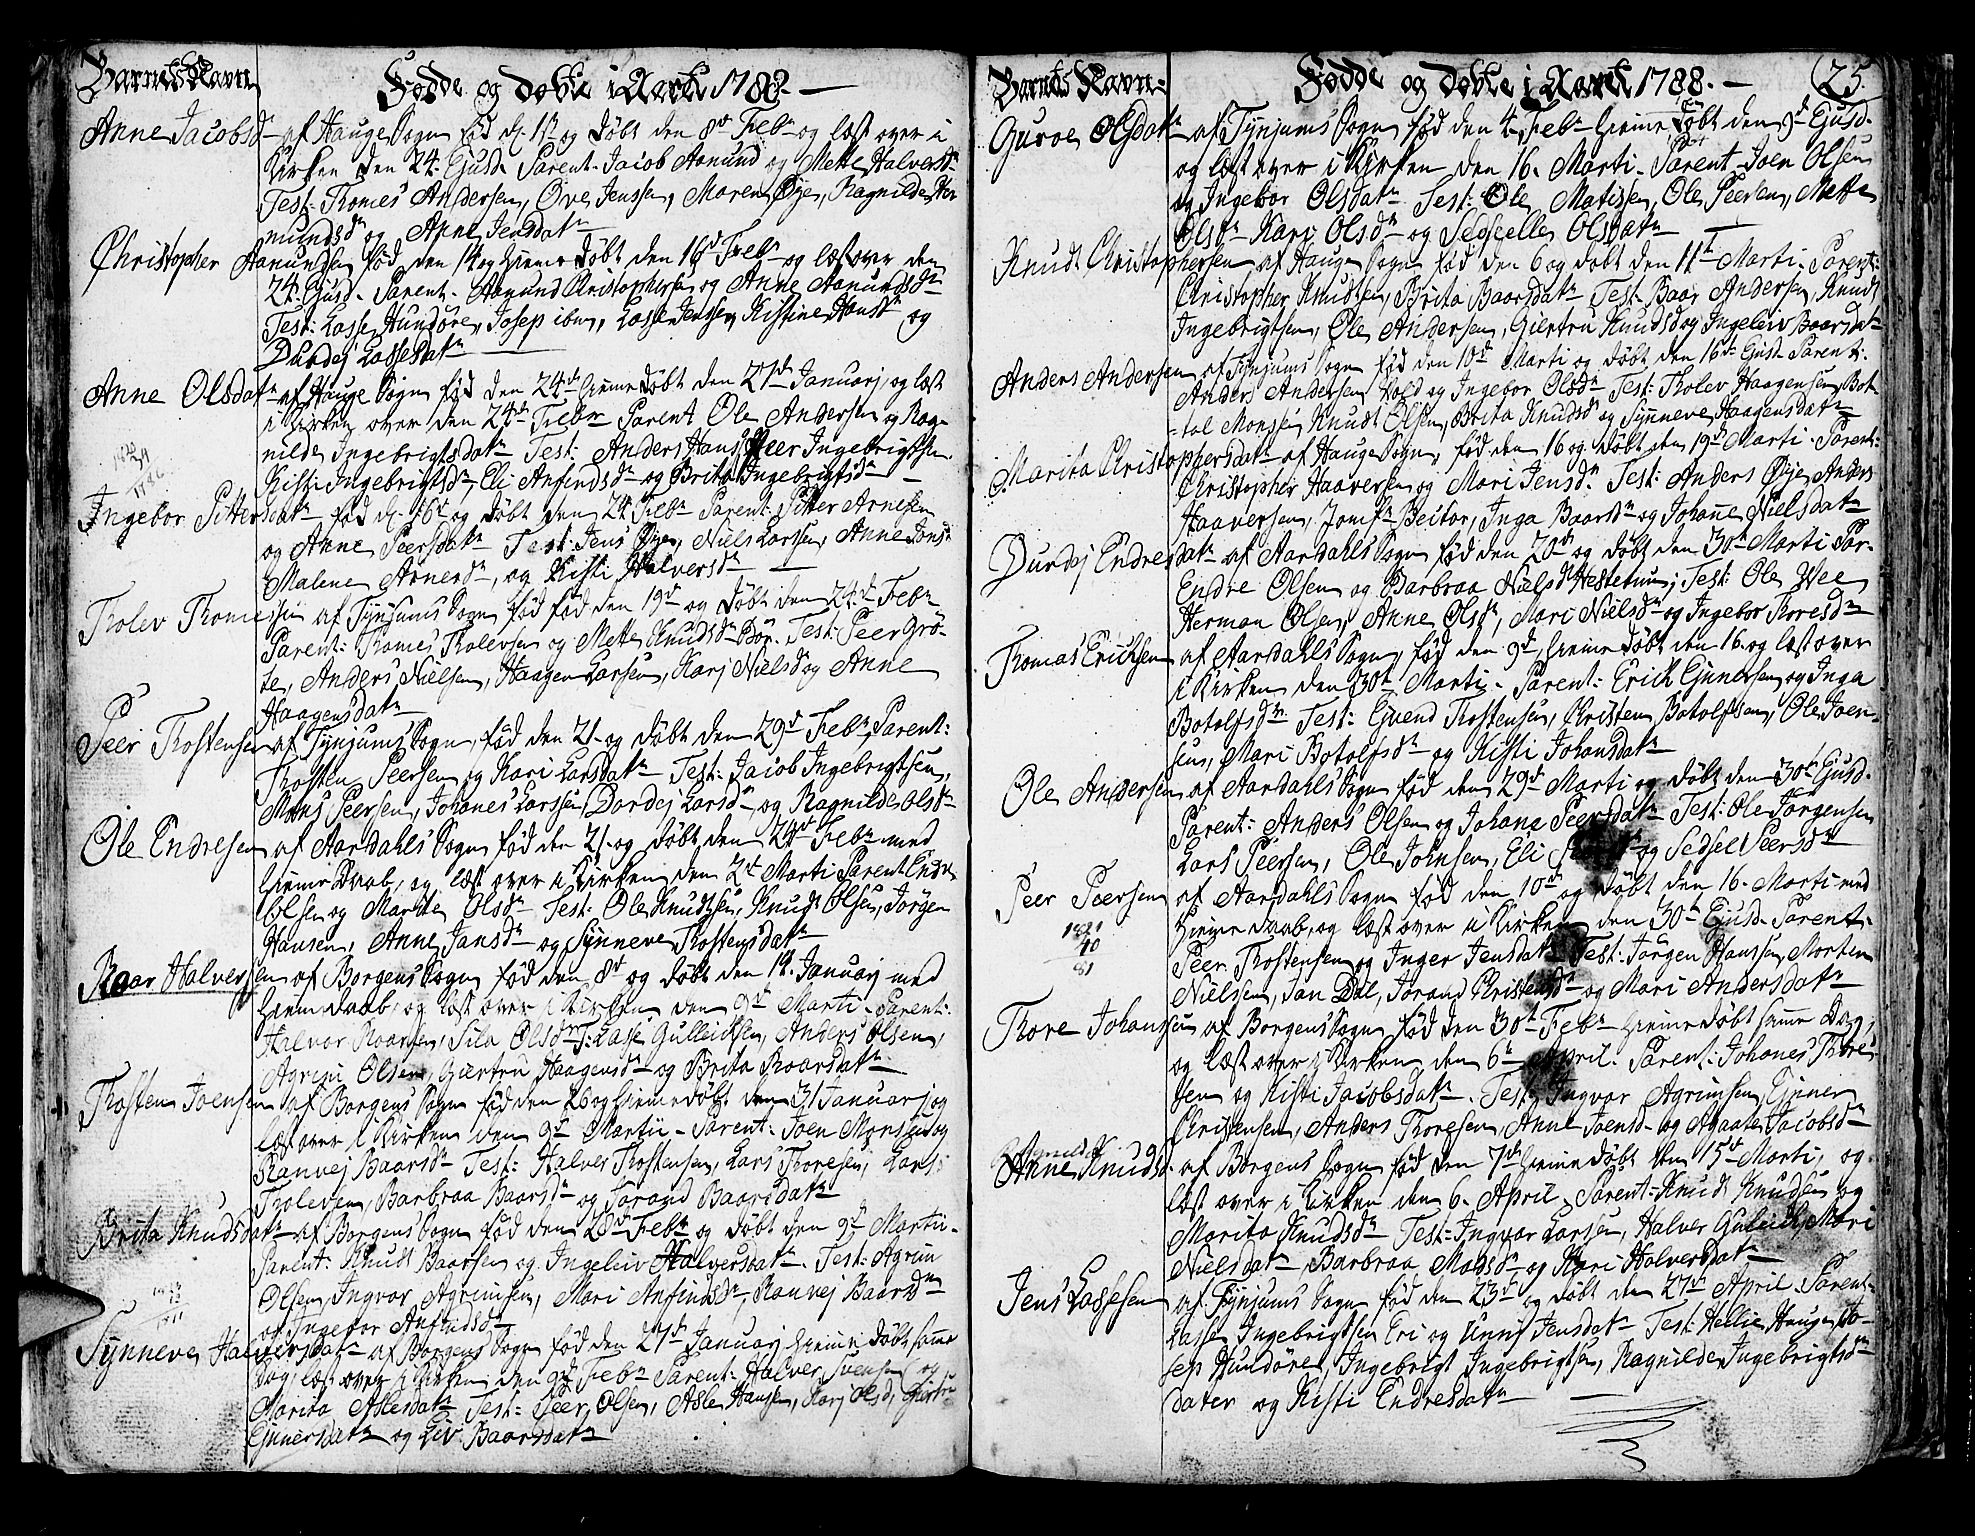 Barnets Navn
Fødde og døbte i Aaret 1788. —
Anne Jacobsd af Hauge Sogn fød d. 1 og døbt den 8d Feb og læst over i
Kirken den 24. Ejusd. Parent. Jacob Amund og Mette Halversd
Test: Thomes Andersen, Ove Jenssen, Maren Øye, Ragnilde
mundsd og Anne Jensdatr
Christopher Aanundsen fød den 14 og hieme døbt den 16d Febr og læst over den
24. Ejusd. Parent. Aanund Christophersen og Anne Aanundsdr
Test: Lasse Hundøre, Josep ibm, Lasse Jenssen, Kistine Hansdr og
Durdej Lassesdatr
Anne Olsdatr af Hauge Sogn fød den 24de hieme døbt den 27d Januarj, og læst
i Kirken over den 24de Febr Parent Ole Andersen og Rag-
nilde Ingebrigtsdatr Test: Anders Hans Peer Ingebrigtsen
Kisti Ingebrigtsdr, Eli Anfindsdr og Brita Ingebrigtsdr
Ingebor Pittersdatr fød d. 16d og døbt den 24 Febr Parent: Pitter Arnesen
og Anne Peersdatr Test: Jens Øye, Niels Larssen, Anne Jonsdr
Malene Arnesdr, og Kisti Halversdr
Tholev Thomesen af Tynjums Sogn fød fød den 19d og døbt den 24de Febr
Parent: Thomes Tholevsen og Mette Knudsdr Bør. Test: Peer Grø-
te, Anders Nielsen, Haagen Larsen, Karj Nielsd og Anne
Haagensdatr
Peer Thostensen af Tynjums Sogn, fød den 21. og døbt den 29d Febr, Parent:
Thosten Peersen og Kari Larsdatr Test: Jacob Ingebrigtsen,
Mons Peersen, Johanes Larssen, Dordej Larsdr, og Ragnilde Olsdr
Ole Endresen af Aardahls Sogn fød den 21. og døbt den 24de Febr med
hieme Daab, og læst over i Kirken den 2d Marti Parent Endre
Olsen og Marite Olsdr Test: Ole Knudtsen, Knudt Olsen, Jørgen
Hansen, Anne Jansdr og Synneve Thostensdatr
Roar Halversen af Borgens Sogn fød den 8d og døbt den 14. Januarj med
hiemedaab, og læst over i Kirken den 9d Marti. Parent:
Halvor Roarsen, Sila Olsdr T: Lasse Gulleicksen, Anders Olsen,
Agrim Olsen, Giertru Haagensdr og Brita Roarsdatr
Thosten Joensen af Borgens Sogn fød den 26 og hieme døbt den 31 Januarj og
læst over i Kirken den 9d Martii. Parent: Joen Monsen og
Ranvej Baarsdr Test: Halver Thostensen, Lars Thoresen, Lars
Tholeven, Barbraa Baarsdr og Jorand Baarsdatr
Brita Knudsdatr af Borgens Sogn fød den 28d Febr og døbt den 9d Martii.
Parent: Knudt Baarsen og Ingeleiv Halversdatr. Test: Agrim
Olsen, Ingvor Agrimsen, Mari Anfindsdr, Ranvej Baarsdr
og Ingebor Anfindsdr
Synneve Halversdatr af Borgens Sogn fød den 27de Januarj hieme døbt samme
Dag, læst over i Kirken den 9d Febr Parent: Halver Svensen og
Marita Aslesdatr Test: Peer Olsen, Asle Hansen, Karj Olsd, Giertru
Ejnersdatr og Liv Baarsdatr
Barnets Navn
Fødde og døbte i Aaret 1788. —
25.
Guroe Olsdatr af Tynjums Sogn fød den 4. Febr hieme døbt den 9d Ejusd.
og læst over i Kirken den 16. Marti. Parent. Joen Olsen
og Ingebor Olsdatr Test: Ole Matissen, Ole Peersen, Mette
Olsdr Kari Olsdr og Olsdatr
Knudt Christophersen af Hauge Sogn fød den 6 og døbt den 11te Marti. Parent:
Christopher Knudsen, Brita Baarsdatr Test: Baar Andersen, Knudt
Ingebrigtsen, Ole Andersen, Giertru Knudsd og Ingeleiv Baarsdatr
Anders Andersen af Tynjums Sogn fød den 10d Marti og døbt den 16de Ejusd Parent:
Anders Andersen Vold og Ingebor Olsdr Test: Tholev Haagensen, Bot-
tol Monsen, Knudt Olsen, Brita Knudsd og Synneve Haagensdatr
Marita Christophersdatr af Hauge Sogn, fød den 16 og døbt den 19d Marti. Parent:
Christopher Haaversen og Mari Jensdr. Test: Anders Øye, Anders
Haaversen, Jomfr Beitor, Inga Baarsdr og Johanne Nielsdatr
Durdej Endresdatr af Aardahls Sogn fød den 28d og døbt den 30te Marti Par-
Endre Olsen og Barbraa Nielsd Hestetun; Test: Ole Wee
Herman Olsen, Anne Olsdr, Mari Nielsdr og Ingebor Thoresdr
Thomas Ericksen af Aardahls Sogn, fød den 9d, hieme døbt den 16. og læst over
i Kirken den 30te Marti. Parent: Erick Ejnersen og Inga
Botolfsdr Test: Ejvend Thostensen, Christen Botolfsen, Ole Joen-
sen, Mari Botolfsdr og Kisti Johansdatr
Ole Andersen af Aardahls Sogn fød den 29d Marti og døbt den 30te Ejusd.
Parent: Anders Olsen og Johana Peersdatr Test: Ole Jørgensen
Lars Peersen, Ole Johnsen, Eli og Sedsel Peersdr
Peer Peersen af Aardahls Sogn fød den 10d og døbt den 16. Marti med
1821
40
81
hieme daab, og læst over i Kirken den 30te Ejusd. Parent.
Peer Thostensen og Inger Jensdatr Test: Jørgen Hanssen, Morten
Nielssen, Jan Dal, Jorand Christensdr og Mari Andersdatr
Thore Johanssen af Borgens Sogn fød den 30te Febr hieme døbt samme Dag,
og læst over i Kirken den 6te April. Parent: Johanes Thore-
sen og Kisti Jacobsdatr. Test: Ingvor Agrimsen, Ejner
Christensen, Anders Thoresen, Anne Joensd. og Agaate Jacobsdr
Anne Knudsd. af Borgens Sogn fød den 7de hieme døbt den 15de Marti, og
læst over i Kirken den 6. April, Parent: Knudt Knudsen og
Marita Knudsdr Test: Ingvor Larsen, Halver Guleich, Mari
Nielsdatr, Barbraa Monsdr og Kari Halversdatr
Jens Lassesen af Tynjums Sogn fød den 23d og døbt den 27de April Parent:
Lasse Ingebrigtsen Eri og Unni Jensdatr Test: Hellie Haugen, Jo-
sep Hundøre, Ingebrigt Ingebrigtsen, Ragnilde Ingebrigts-
dater og Kisti Endresdatr